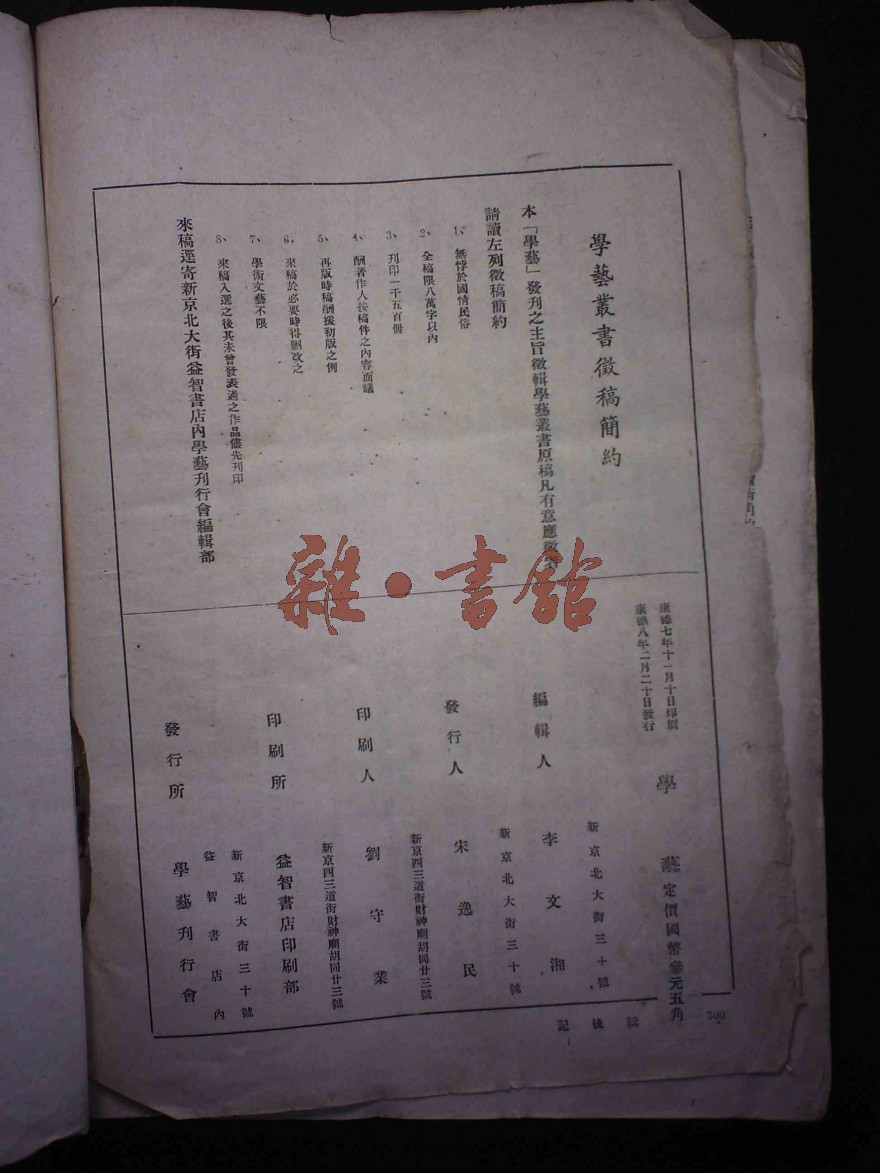 學藝叢書徵稿簡約
本「學藝」發刊之主旨徵輯學藝叢書原稿凡有意應徵者
請讀左列徵稿簡約
1、無悖於國情民俗
2、全稿限八萬字以內
3、刊印一千五百冊
4、酬著作人按稿件之內容面議
5、再版時稿酬援初版之例
6、來稿於必要時得刪改之
7、學術文藝不限
8、來稿入選之後其未曾發表過之作品儘先刊印
來稿逕寄新京北大街益智書店內學藝刋行會編輯部
雜·書館
康德七年十一月十日印刷
康德八年二月二十日發行
學藝 定價國幣參元五角
新京北大街三十號
編輯人 李文湘
新京北大街三十號
發行人 宋逸民
新京西三道街財神廟胡同廿三號
印刷人 劉守業
新京西三道街財神廟胡同廿三號
印刷所 益智書店印刷部
新京北大街三十號
益智書店內
發行所 學藝刋行會
輯後記
300